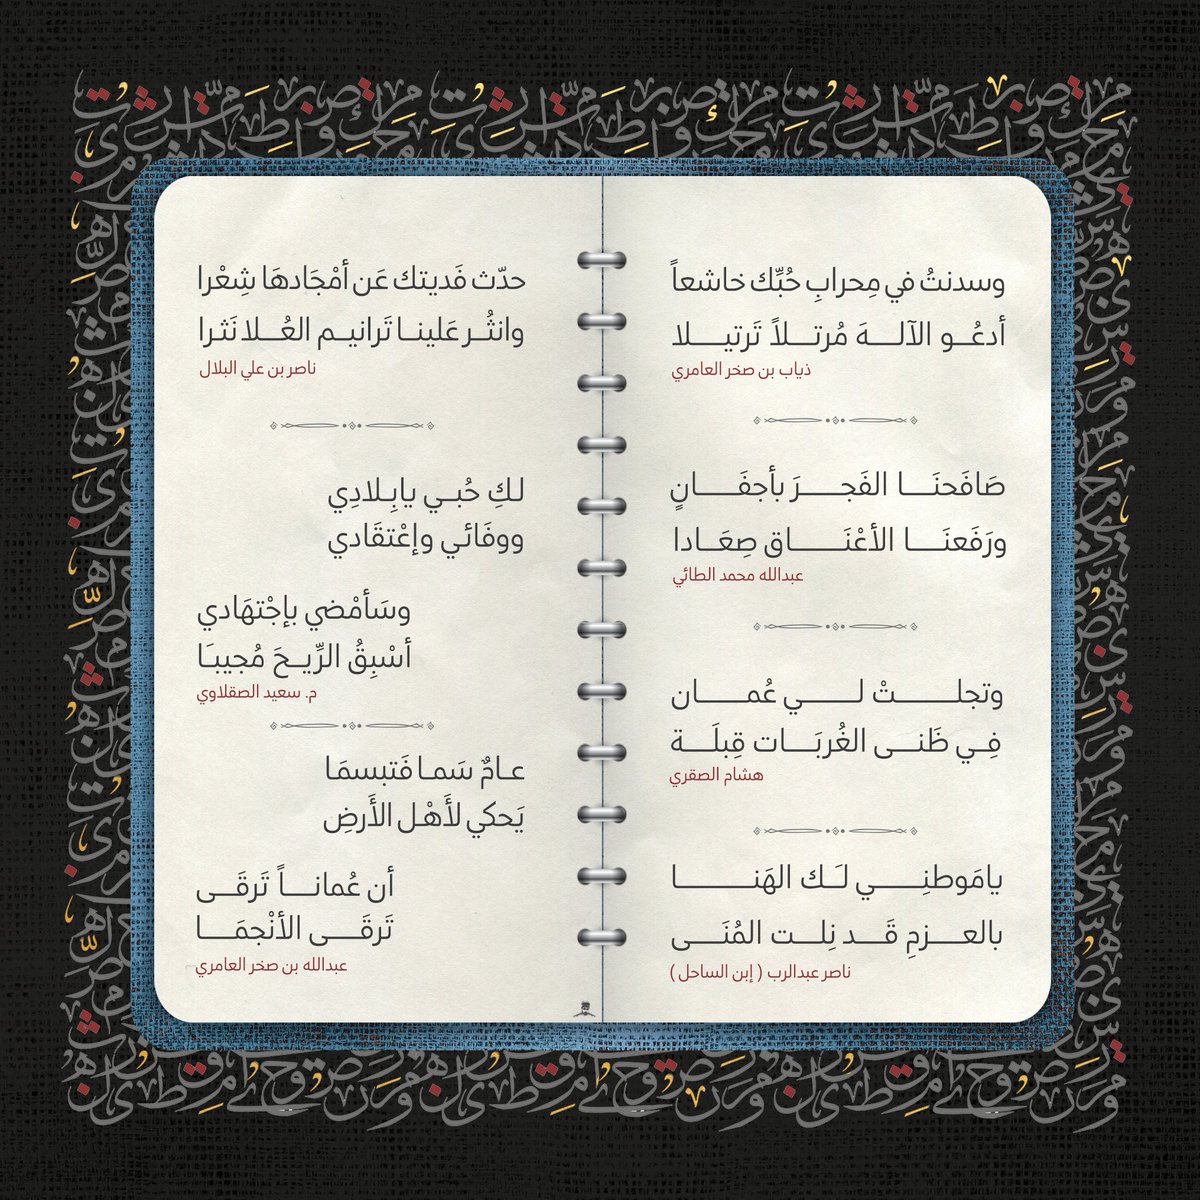 وسدنتُ في مِحرابِ حُبِّك خاشعاً
أدعُو الآلهَ مُرتلاً تَرتيلا
ذياب بن صخر العامري
صَافَحنَا الفَجرَ بأجفَانٍ
ورَفَعنَا الأعْنَاق صِعَادا
عبدالله محمد الطائي
وتجلتْ لي عُمان
فِي ظَنى الغُربَات قِبلَة
هشام الصقري
يامَوطنِي لَك الهَنا
بالعزمِ قَد نِلت المُنَى
ناصر عبدالرب ( إبن الساحل )
حدّث فَديتك عَن أمْجَادهَا شِعْرا
وانثُر عَلينا تَرانيم العُلا نَثرا
ناصر بن علي البلال
لكِ حُبي يابِلادِي
ووفَائي وإعْتقَادي
وسَأمْضي بإجْتهَادي
أسْبِقُ الرِّيحَ مُجيبَا
م. سعيد الصقلاوي
عامٌ سَما فَتبسمَا
يَحكي لأَهْل الأَرضِ
أن عُماناً تَرقَى
تَرقَى الأنْجمَا
عبدالله بن صخر العامري